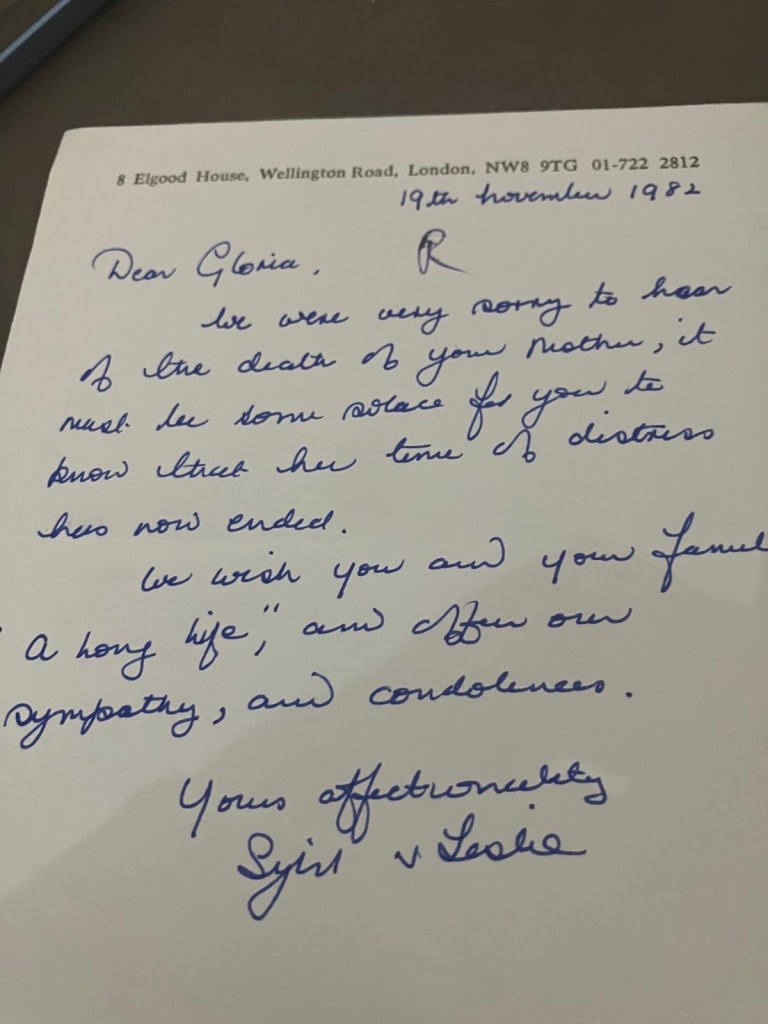 8 Elgood House, Wellington Road, London, NW8 9TG 01-722 2812
19th November 1982
Dear Gloria, R
We were very sorry to hear
of the death of your Mother, it
must be some solace for you to
know that her time of distress
has now ended.
We wish you and your famil
"A Long Life", and offer our
sympathy, and condolences.
Yours affectionately
Sybil & Leslie